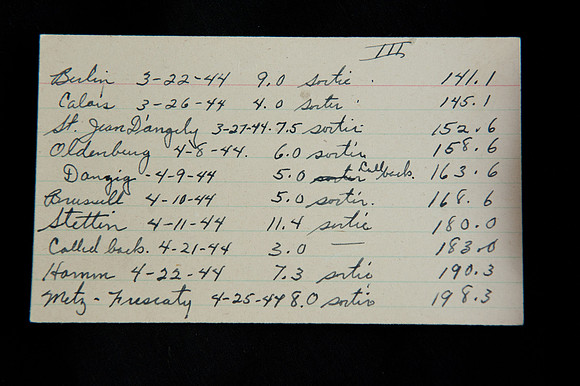 III
Berlin 3-22-44 9.0 sortie 141.1
Calais 3-26-44 4.0 sortie 145.1
St. Jean D'angely 3-27-44. 7.5 sortie 152.6
Oldenburg 4-8-44. 6.0 sortie 158.6
Danzig - 4-9-44 5.0 sortie Call back. 163.6
Brussell 4-10-44 5.0 sortie. 168.6
Stettin 4-11-44 11.4 sortie 180.0
Called back. 4-21-44 3.0 — 183.0
Hamm 4-22-44 7.3 sortie 190.3
Metz - Frescaty 4-25-44 8.0 sortie 198.3